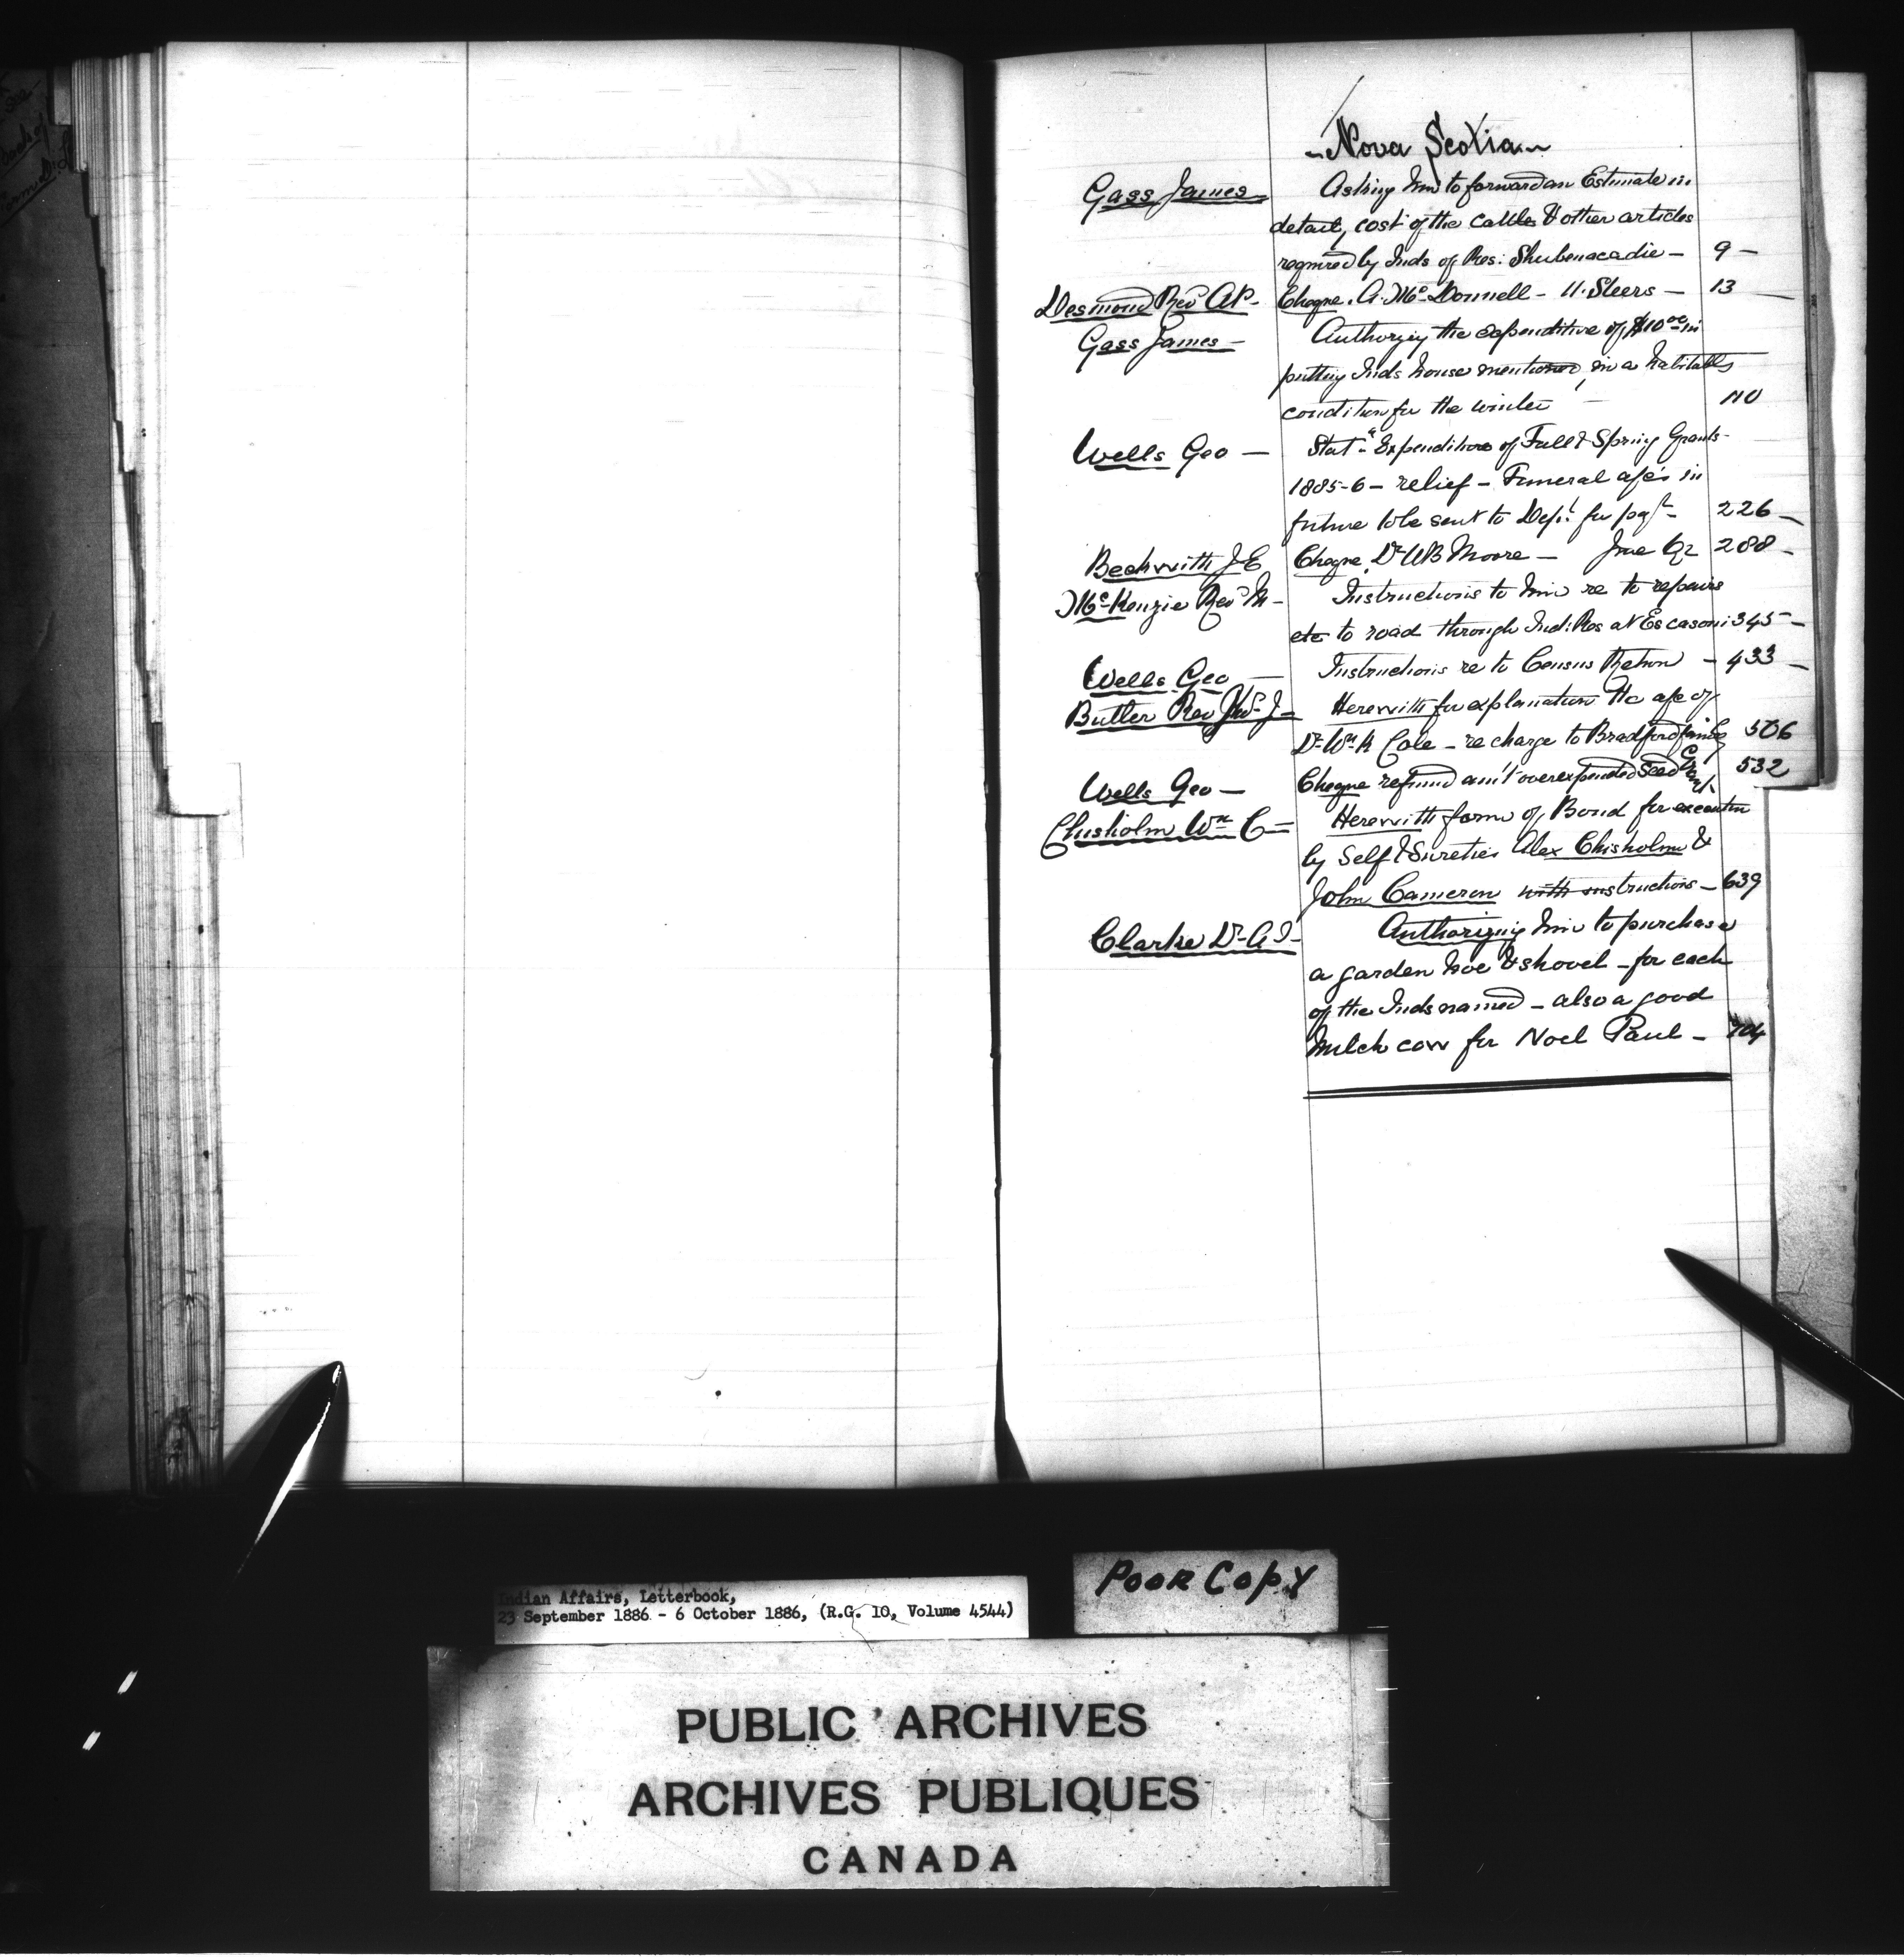 Nova Scotia
Gass James Asking him to forward an Estimate in
detail, cost of the cattle & other articles
required by Inds of Res: Shubenacadie - 9 -
Desmond Revd A.P. - Cheque. A. McDonnell - 11. Steers - 13
Gass James - Authorizing the expenditure of $10.00 in
putting Inds house mentioned, in a habitable
condition for the winter - 110
Wells Geo - Stat. Expenditure of Fall & Spring Grants -
1885-6 - relief - Funeral a/cs in
future to be sent to Dept. for payt - 226 -
Beckwith J E Cheque. Dr WB Moore - June Qr 288 -
McKenzie Revd M - Instructions to him re to repairs
etc to road through Ind: Res at Escasoni 345 -
Wells Geo - Instructions re to Census Return - 433 -
Butler Rev Thos J - Herewith for explanation &c a/c of
Dr Wm K Cole - re charge to Bradford family 506
Wells Geo - Cheque refund am't overexpended Seed Grant. 532
Chisholm Wm C - Herewith form of Bond for execution
by Self & Sureties Alex Chisholm &
John Cameron with instructions - 639
Clarke Dr A I - Authorizing him to purchase
a garden hoe & shovel - for each
of the Inds named - also a good
milch cow for Noel Paul - 704
Poor Copy
Indian Affairs, Letterbook,
23 September 1886 - 6 October 1886, (R.G. 10, Volume 4544)
PUBLIC ARCHIVES
ARCHIVES PUBLIQUES
CANADA